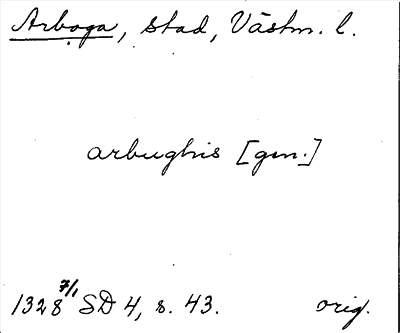 Arboga, stad, Västm. l.
arbughis [gen.]
1328 7/1 SD 4, s. 43. orig.